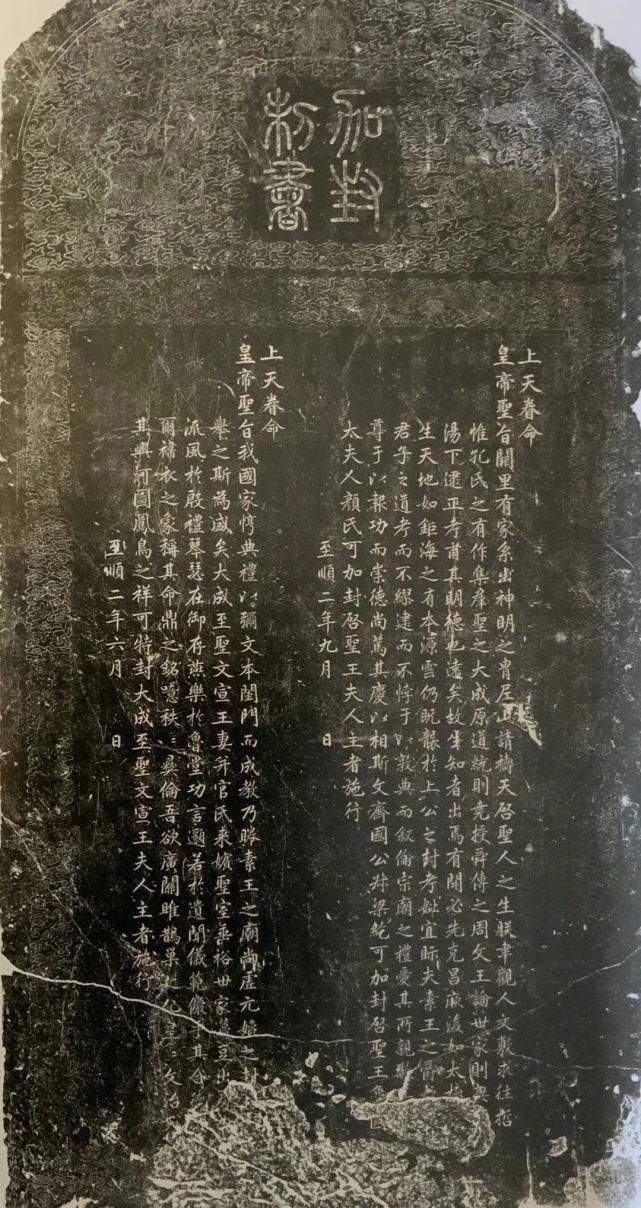 加封
制書
上天眷命
皇帝聖旨闕里有家系出神明之胄尼山請禱天啓聖人之生朕聿觀人文敷求往哲
惟孔氏之有作集羣聖之大成原道統則堯授舜傳之周文王論世家則契
湯下逮正考甫其明德也遠矣故生知者出焉有開必先克昌厥後如太極
生天地如鉅海之有本源雲仍既襲於上公之封考妣宜視夫素王之爵
君子之道考而不繆建而不悖于以敦典而敘倫宗廟之禮愛其所親敬
尊于以報功而崇德尚篤其慶以相斯文齊國公叔梁紇可加封啓聖王
太夫人顏氏可加封啓聖王夫人主者施行
至順二年九月 日
上天眷命
皇帝聖旨我國家惇典禮以彌文本閨門而成教乃睠素王之廟尚虛元媲之封
舉之斯為盛矣大成至聖文宣王妻并官氏來嬪聖室垂裕世家籩豆出
流風於殷禮琴瑟在御存燕樂於魯堂功言邈若於遺聞儀範儼其合
爾褘衣之象稱其命鼎之銘噫秩秩彝倫吾欲廣關雎鵲巢之化皇皇文治
其興河圖鳳鳥之祥可特封大成至聖文宣王夫人主者施行
至順二年六月 日